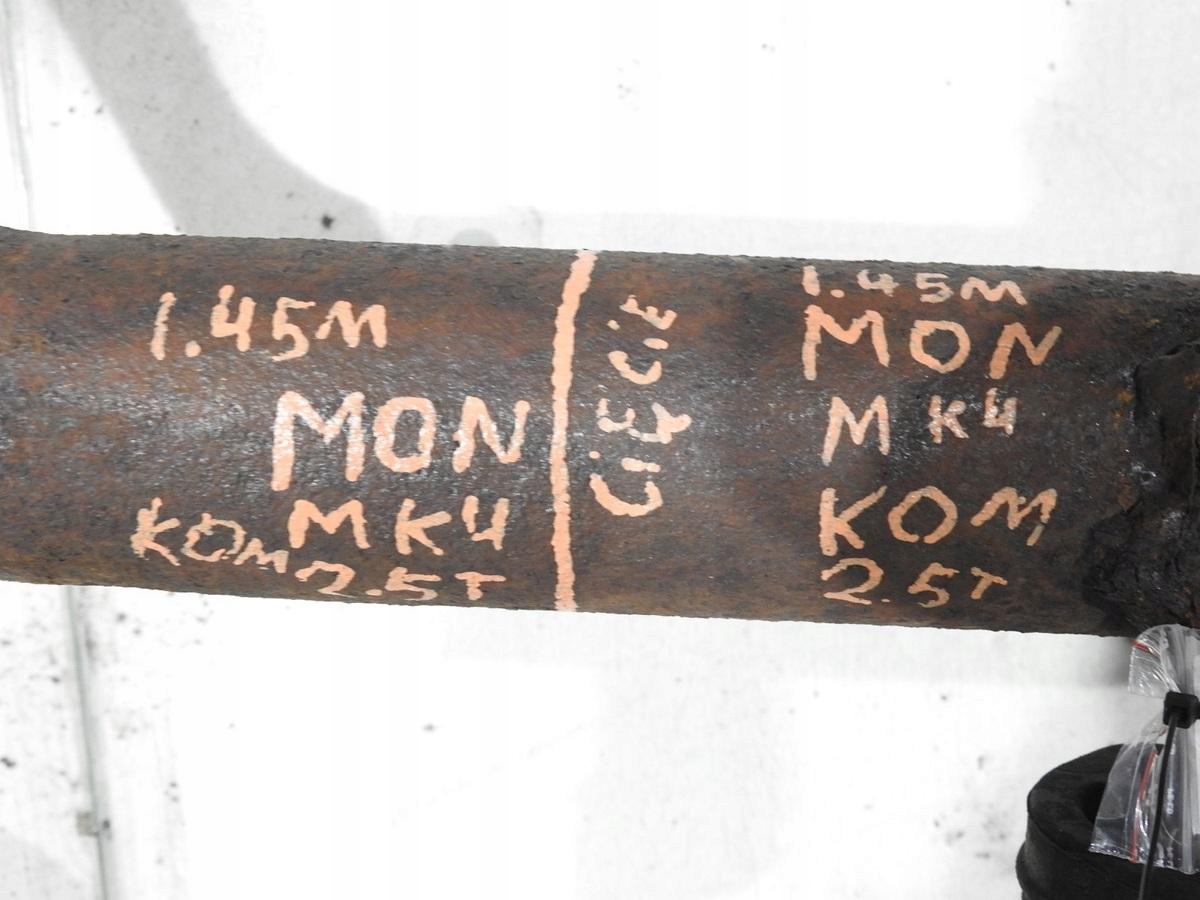 1.45M
MON
MK4
KOM
2.5T
CIĘCIE
1.45M
MON
MK4
KOM
2.5T